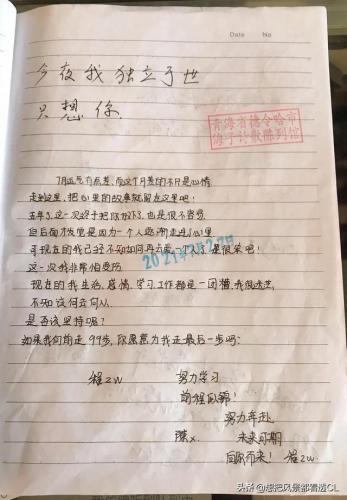 Date No
今夜我独立于世
只想你
青海省德令哈市
海子诗歌陈列馆
7月运气有点差,而这个月差的不只是心情
走到这里,把心里的故事就留在这里吧!
五年了,这一次终于把你放下了,也是很不容易
但后面才发觉是因为一个人逐渐走进了心里
可现在的我已经不知如何再去面对一个人了是很笑吧!
这一次我非常怕受伤
2021年7月27日
现在的我生活,感情,学习,工作都是一团糟,我很迷茫
不知该何去何从
是否该坚持呢?
如果我向前走99步,你愿意为我走最后一步吗?
程zw 努力学习
前程似锦!
努力奔赴
陈x. 未来可期
回归而来! 程zw
头条@想把风景都看透CL